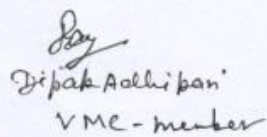 Dipak Adhikari
VMC - member